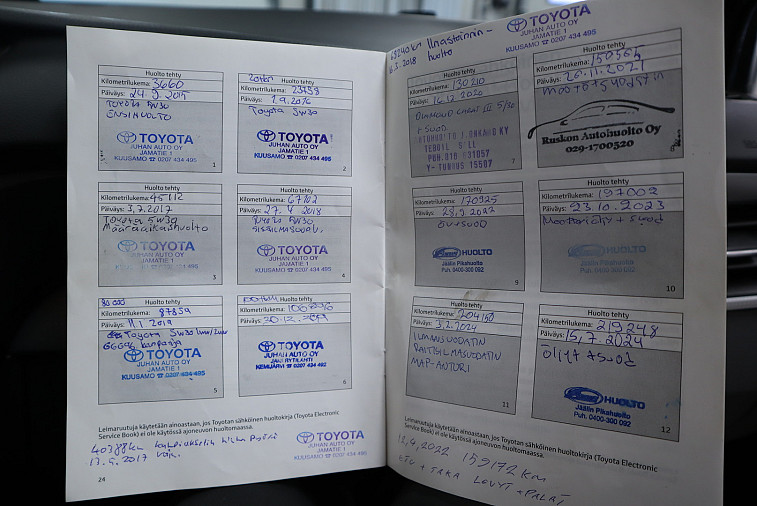 Huolto tehty
Kilometrilukema: 3660
Päiväys: 24.9.2015
Toyota 5W30
ENSIHUOLTO
TOYOTA
JUHAN AUTO OY
JAMATIE 1
KUUSAMO ☎ 0207 434 495
1
Huolto tehty
Kilometrilukema: 23758
Päiväys: 2.9.2016
Toyota 5W30
TOYOTA
JUHAN AUTO OY
JAMATIE 1
KUUSAMO ☎ 0207 434 495
2
Huolto tehty
Kilometrilukema: 45112
Päiväys: 3.7.2017
Toyota 5W30
Määräaikaishuolto
TOYOTA
JUHAN AUTO OY
JAMATIE 1
KUUSAMO ☎ 0207 434 495
3
Huolto tehty
Kilometrilukema: 67702
Päiväys: 27.4.2018
Toyota 5W30
TOYOTA
JUHAN AUTO OY
JAMATIE 1
KUUSAMO ☎ 0207 434 495
4
Huolto tehty
Kilometrilukema: 87859
Päiväys: 11.1.2019
Toyota 5W30
kampanja
TOYOTA
JUHAN AUTO OY
JAMATIE 1
KUUSAMO ☎ 0207 434 495
5
Huolto tehty
Kilometrilukema:
Päiväys: 20.12.2019
TOYOTA
JUHAN AUTO OY
JANI RYTILAHTI
KEMIJÄRVI ☎ 0207 434 492
6
Leimaruutuja käytetään ainoastaan, jos Toyotan sähköinen huoltokirja (Toyota Electronic
Service Book) ei ole käytössä ajoneuvon huoltomaassa.
40388km
13.4.2017
TOYOTA
JUHAN AUTO OY
JAMATIE 1
KUUSAMO ☎ 0207 434 495
24
68240km Ilmastoinnin-
6.3.2018 huolto
TOYOTA
JUHAN AUTO OY
JAMATIE 1
KUUSAMO ☎ 0207 434 495
Huolto tehty
Kilometrilukema: 130210
Päiväys: 16.12.2020
5/30
+ SUOD.
7
Huolto tehty
Kilometrilukema: 150564
Päiväys: 26.11.2021
Ruskon Autohuolto Oy
029-1700520
8
Huolto tehty
Kilometrilukema: 170925
Päiväys: 28.9.2022
Öljy+suod
HUOLTO
Jäälin Pikahuolto
Puh. 0400-300 092
9
Huolto tehty
Kilometrilukema: 197002
Päiväys: 23.10.2023
Moottoriöljy + suod
HUOLTO
Jäälin Pikahuolto
Puh. 0400-300 092
10
Huolto tehty
Kilometrilukema: 204150
Päiväys: 3.2.2024
ILMANSUODATIN
RAITISILMASUODATIN
MAP-ANTURI
11
Huolto tehty
Kilometrilukema: 219248
Päiväys: 15.7.2024
Öljyt + suod
HUOLTO
Jäälin Pikahuolto
Puh. 0400-300 092
12
Leimaruutuja käytetään ainoastaan, jos Toyotan sähköinen huoltokirja (Toyota Electronic
Service Book) ei ole käytössä ajoneuvon huoltomaassa.
12.4.2022 159172 km
ETU + TAKA LEVYT + PALAT